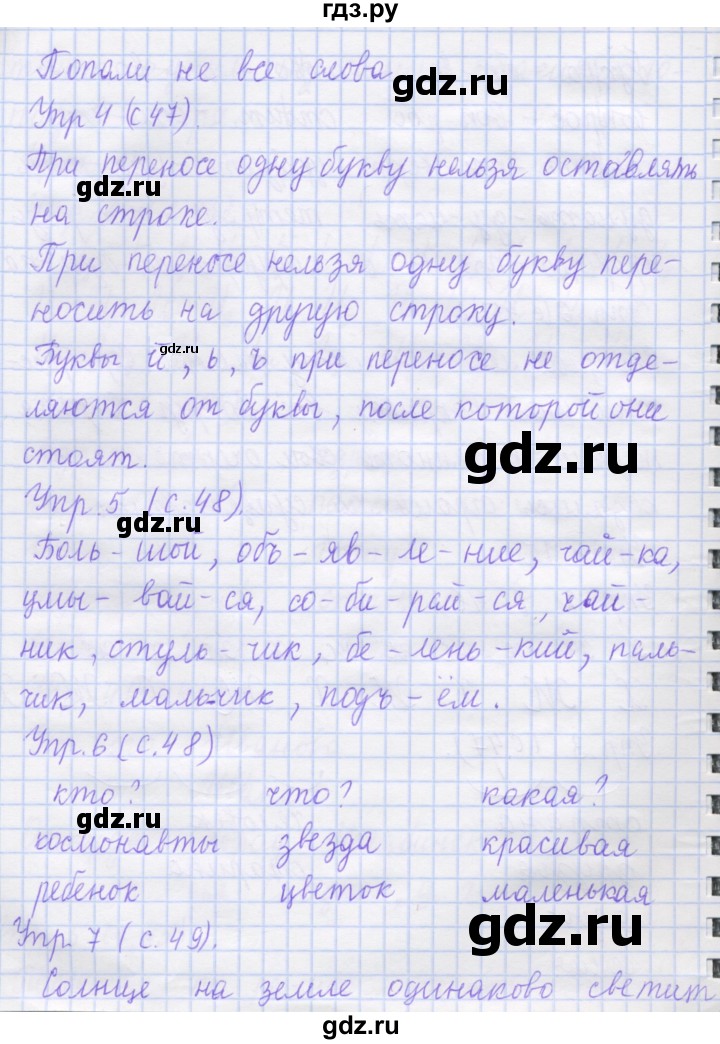 гдз.ру
Попали не все слова
gdz.ru
Упр 4 (с 47).
При переносе одну букву нельзя оставлять
gdz.ru
на строке.
При переносе нельзя одну букву пере-
носить на другую строку.
gdz.ru
Буквы й, ь, ъ при переносе не отде-
ляются от буквы, после которой они
gdz.ru
стоят.
Упр. 5 (с. 48).
gdz.ru
Боль-шой, объ-яв-ле-ние, чай-ка,
умы-вай-ся, со-би-рай-ся, чай-
ник, стуль-чик, бе-лень-кий, паль-
чик, маль-чик, подъ-ём.
Упр. 6 (с. 48)
кто? что? какая?
gdz.ru
космонавты звезда красивая
ребенок цветок маленькая
gdz.ru
gdz.ru
Упр. 7 (с. 49).
Солнце на земле одинаково светит
gdz.ru